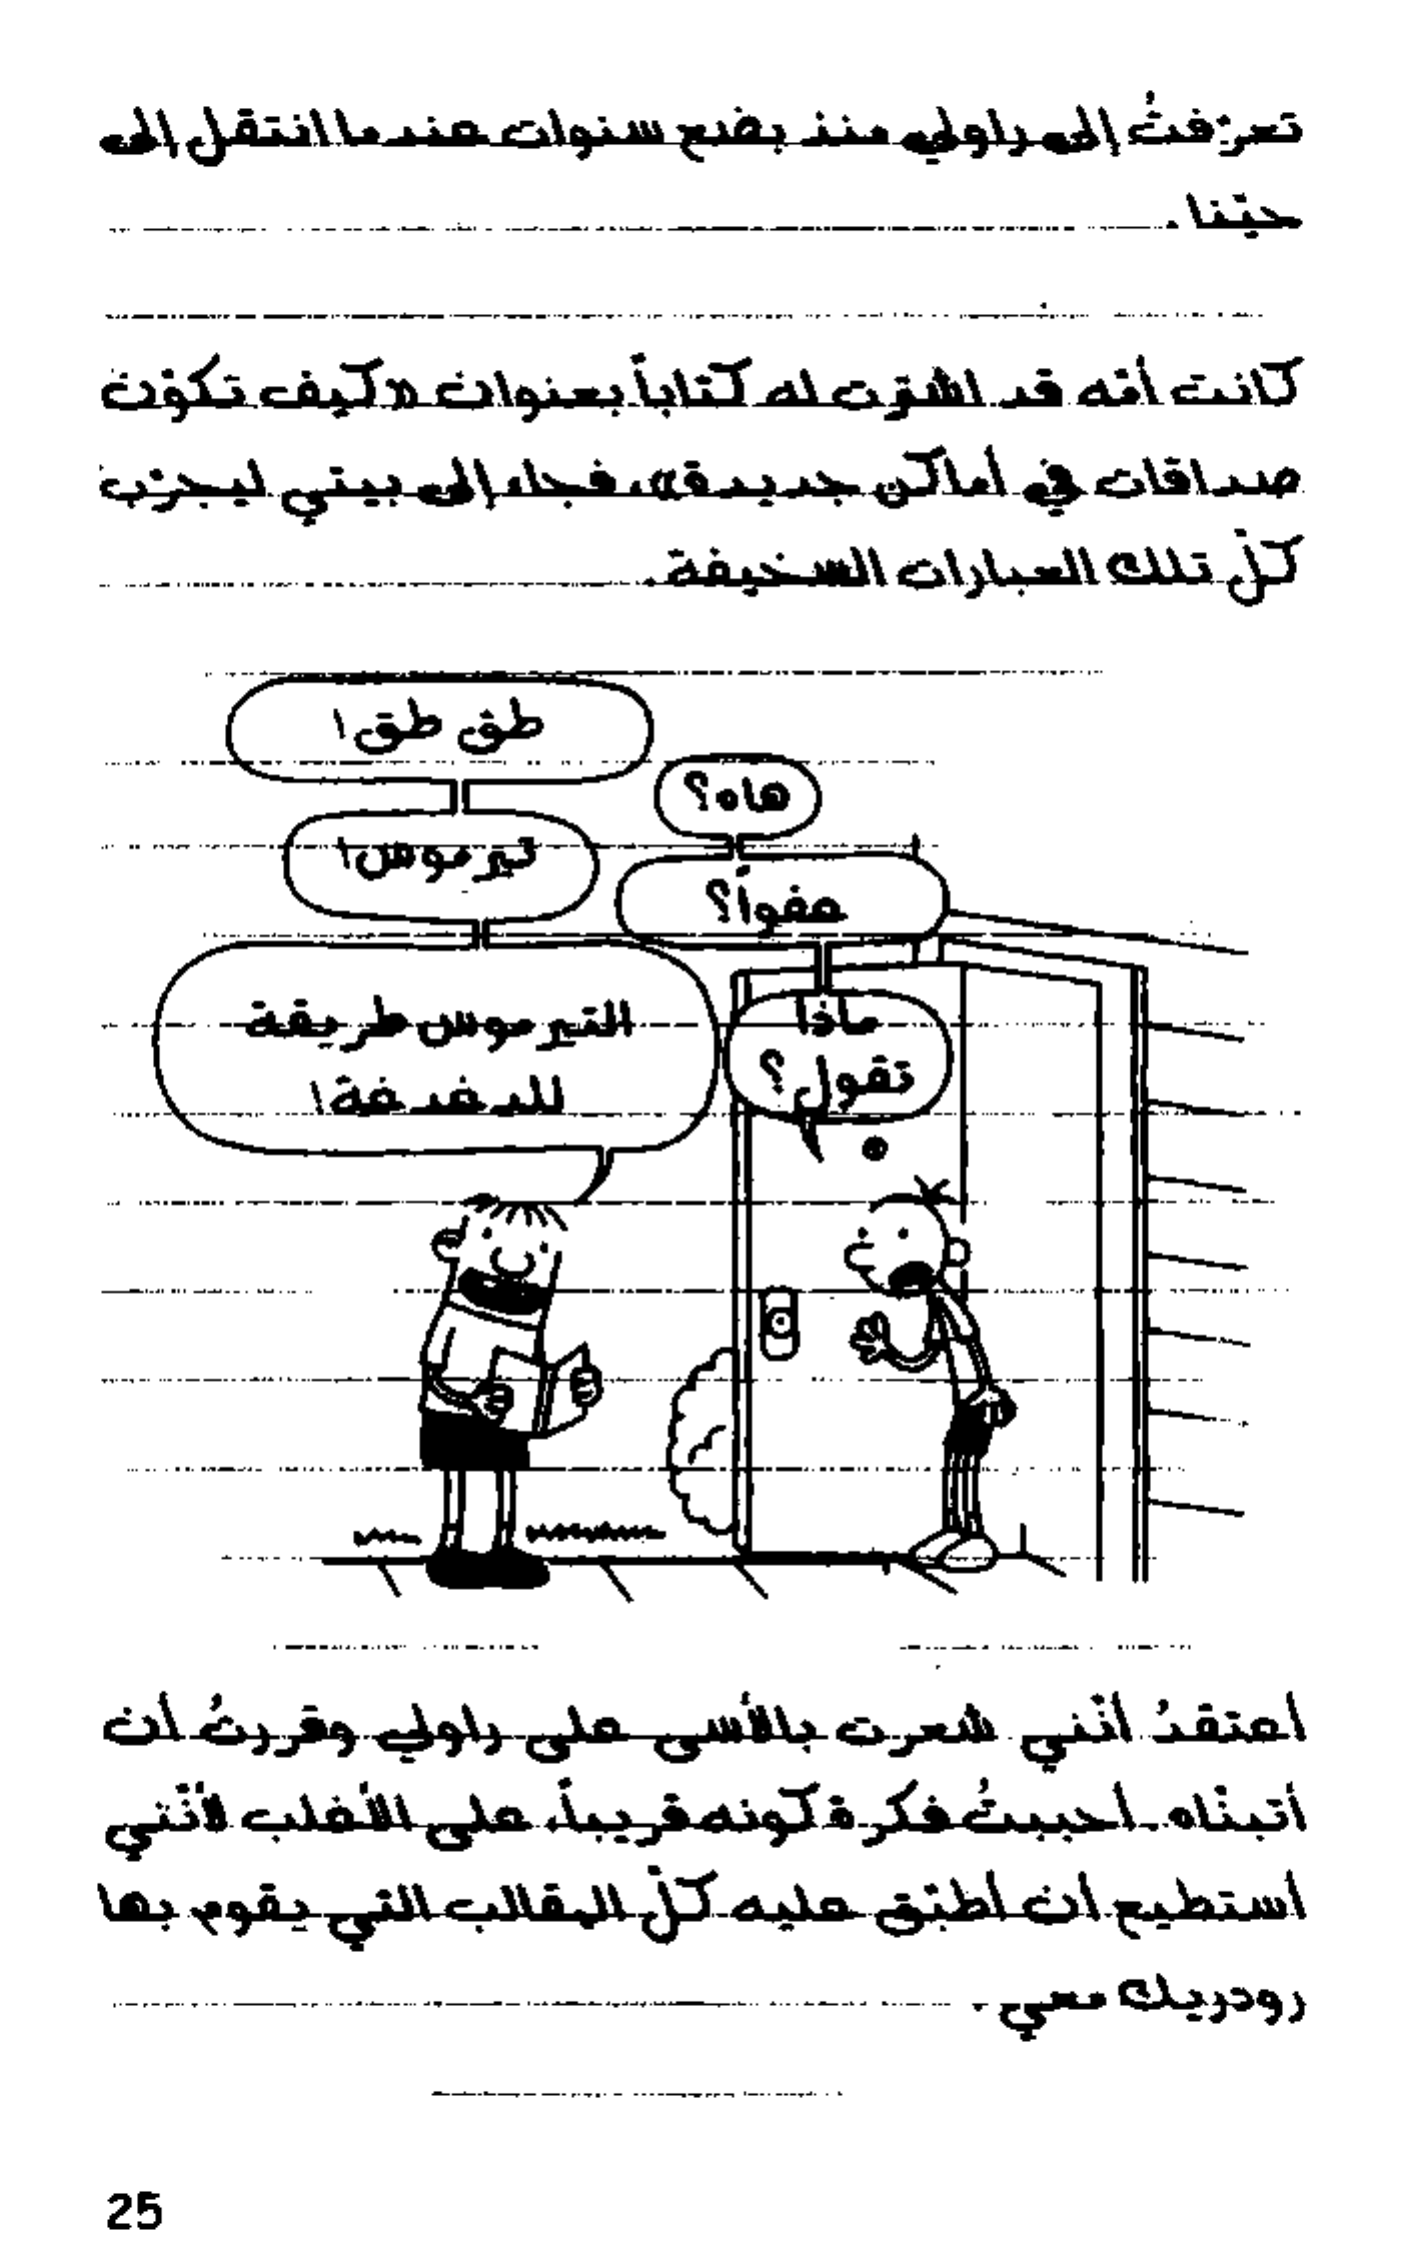 تعرّفتُ إلى راولي منذ بضع سنوات عندما انتقل إلى
حيّنا.
كانت أمّه قد اشترت له كتاباً بعنوان «كيف تكوّن
صداقات في أماكن جديدة»، فجاء إلى بيتي ليجرّب
كلّ تلك العبارات السخيفة.
طق طق!
هاه؟
تيرموس!
عفواً؟
التيرموس طريقة
للدغدغة!
ماذا
تقول؟
أعتقدُ أنّني شعرت بالأسى على راولي وقررتُ أن
أتبنّاه. أحببتُ فكرة كونه قريباً، على الأغلب لأنّني
أستطيع أن أطبّق عليه كلّ المقالب التي يقوم بها
رودريك معي.
25